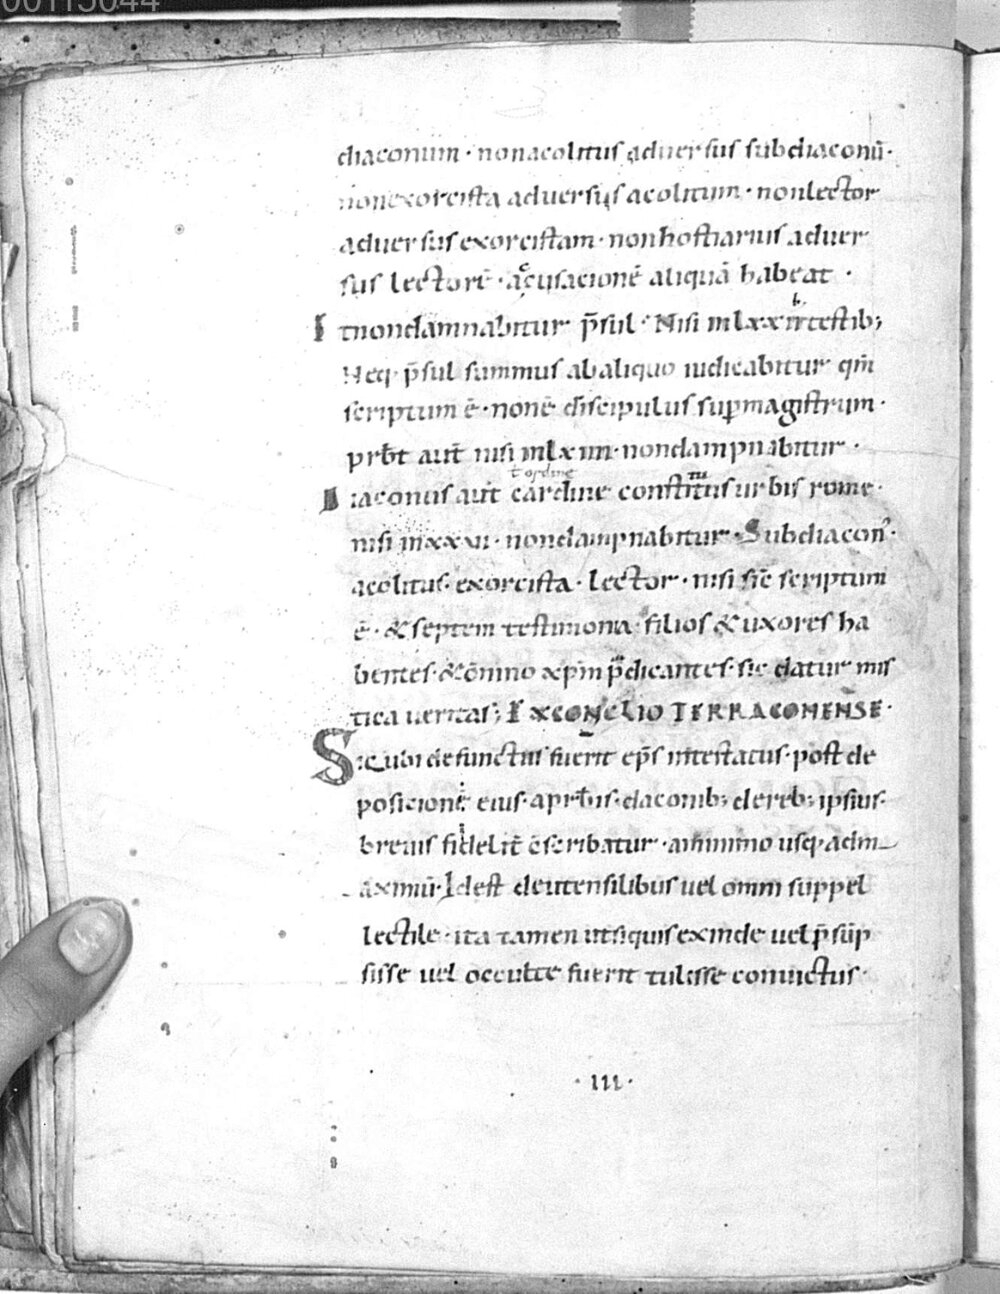 diaconum · non acolitus aduersus subdiaconū ·
non exorcista aduersus acolitum · non lector
aduersus exorcistam · non hostiarius aduer
sus lectorē · acusacionē aliquā habeat ·
Et non damnabitur p̄sul · Nisi in lxxii testib;
Neq; p̄sul summus ab aliquo iudicabitur qm̄
scriptum ē · non ē discipulus sup magistrum ·
prb̄t aut̄ nisi in lxiiii · non dampnabitur ·
ł ordine
Diaconus aut̄ cardine constitutus urbis rome ·
nisi in xxxvi · non dampnabitur · Subdiacon᾽ ·
acolitus · exorcista · lector · nisi sic̄ scriptum
ē · & septem testimonia · filios & uxores ha
bentes · & om̄ino xp̄m p̄dicantes · sic datur mis
tica ueritas; EX CONCILIO TERRACONENSE ·
Sicubi defunctus fuerit ep̄s intestatus · post de
posicionē eius · a prb̄is · diaconib; de reb; ipsius ·
breuis fidelit̄ c̄scribatur · a minimo usq; ad m
aximū · Id est de utensilibus uel omni suppel
lectile · ita tamen ut siquis exinde uel p̄sūp
sisse uel occulte fuerit tulisse conuictus ·
· III ·